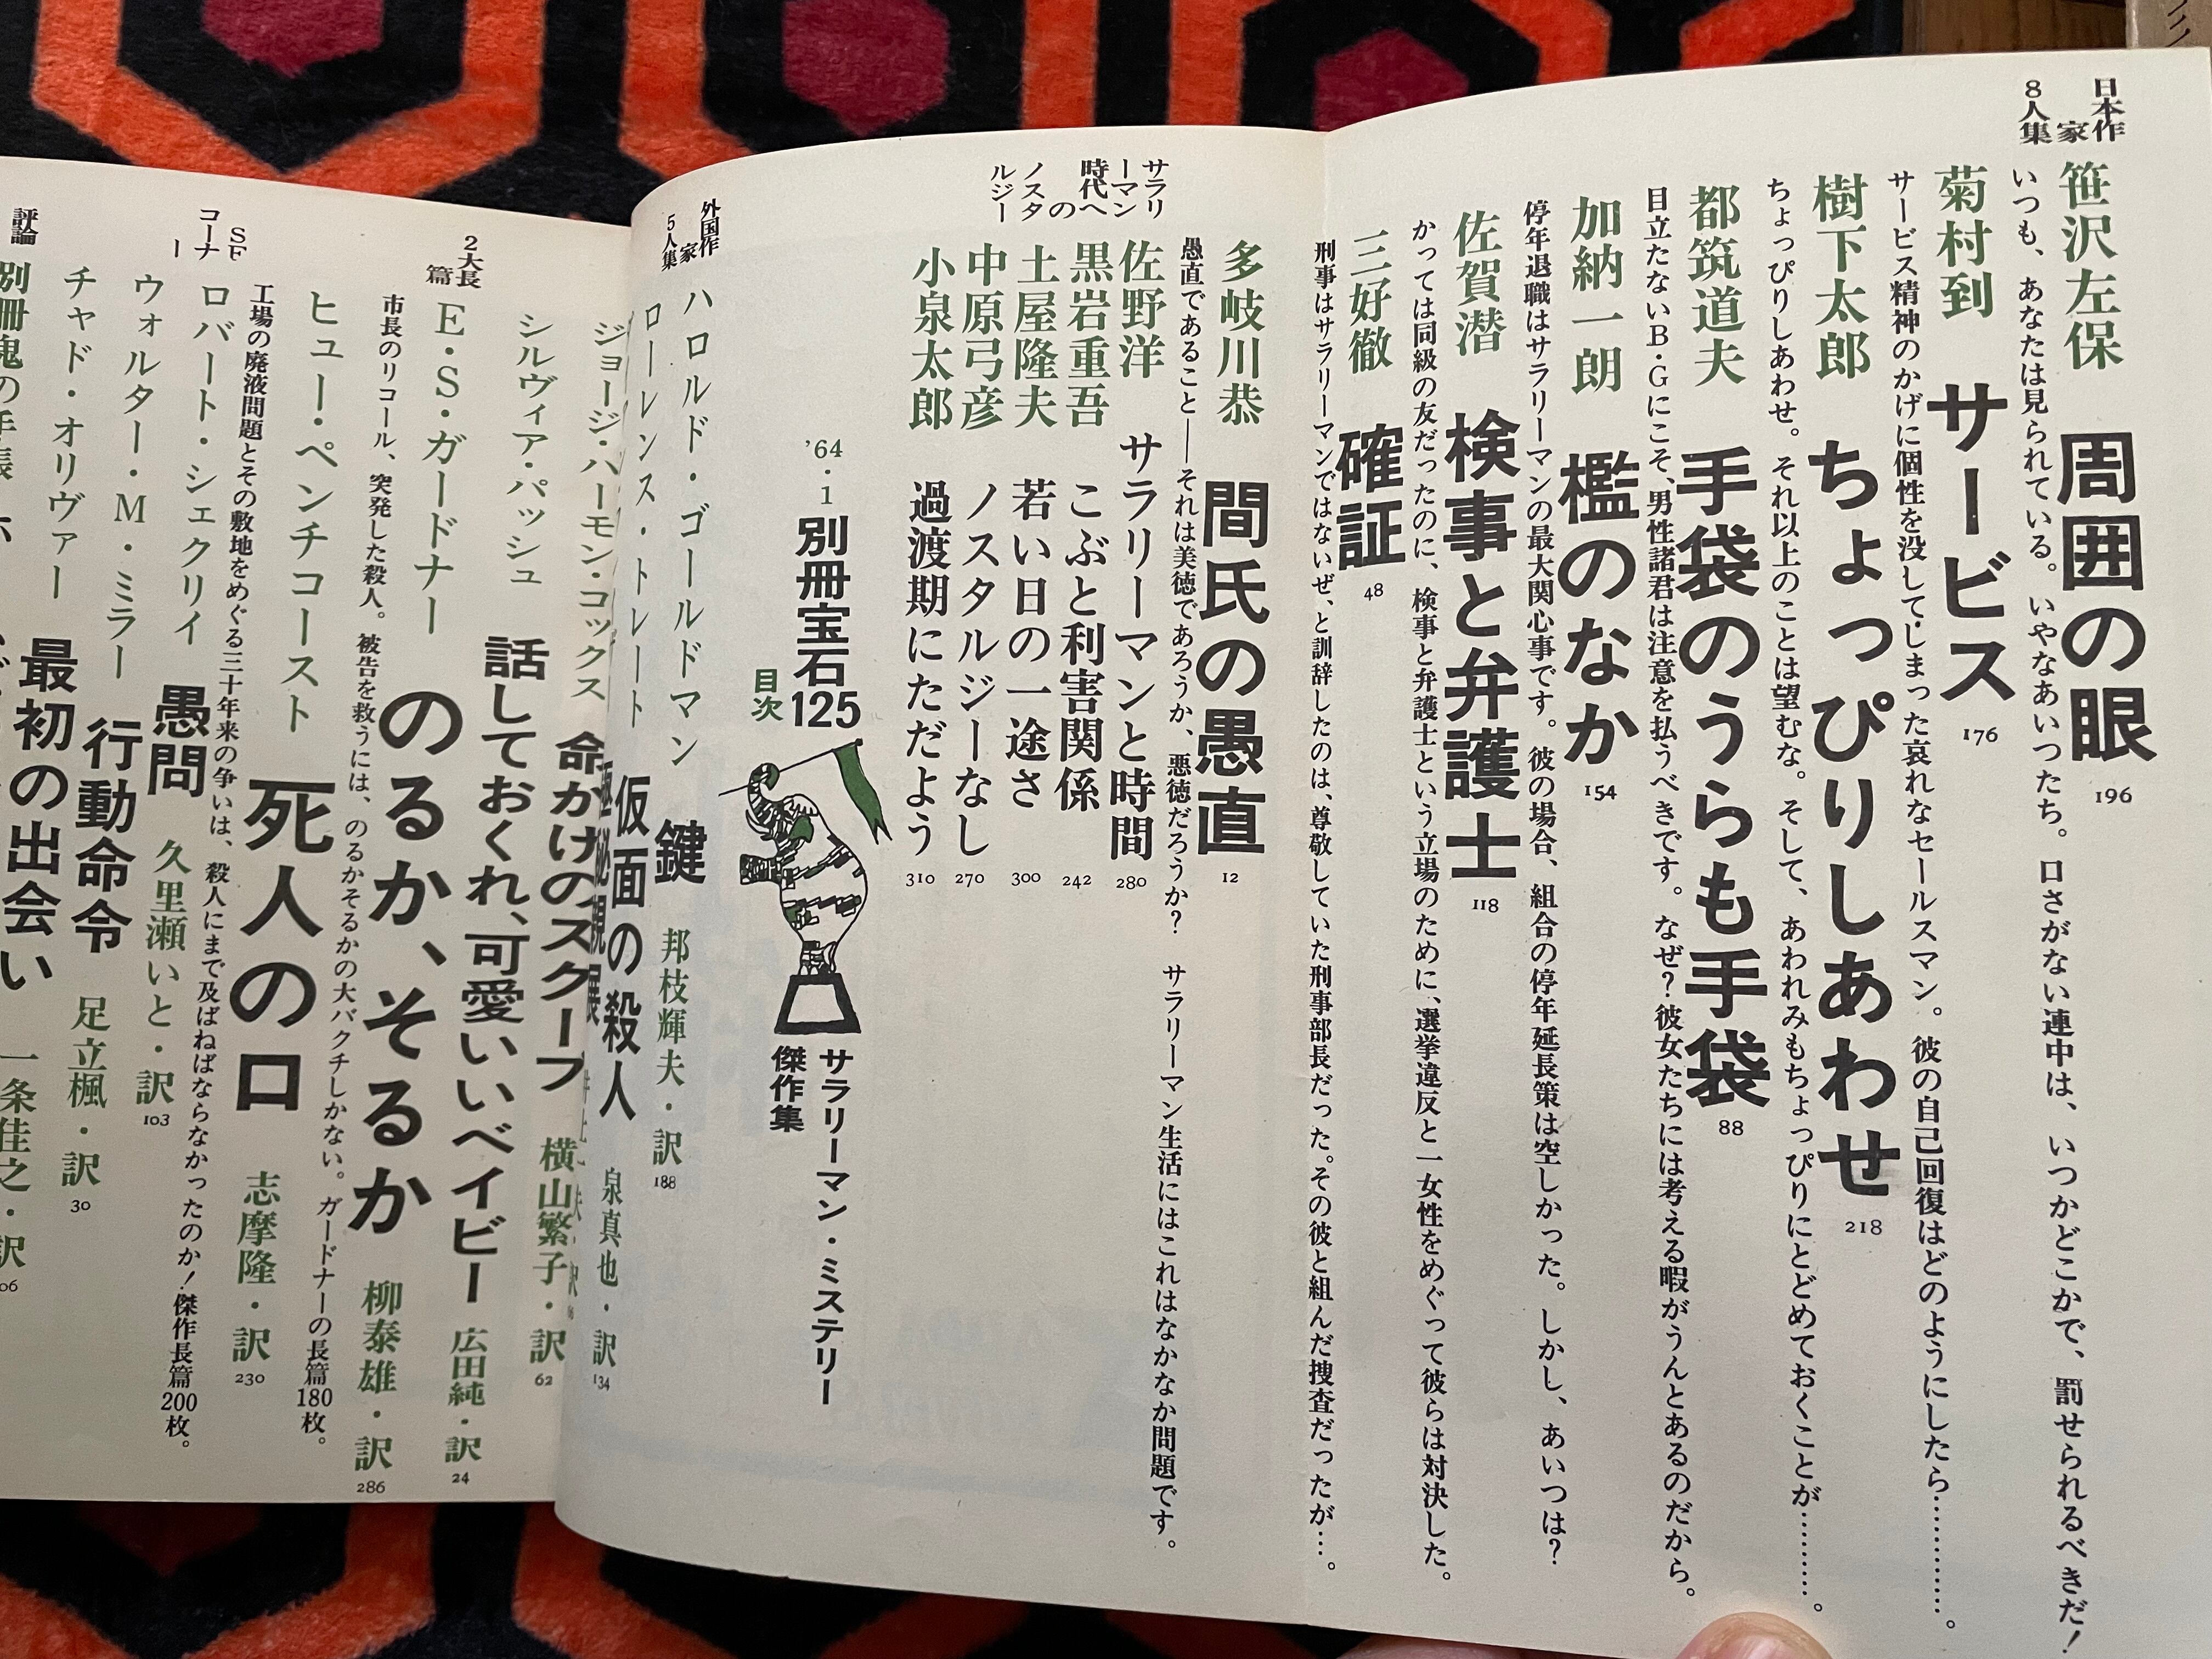 日本作家8人集
笹沢左保 周囲の眼 196
いつも、あなたは見られている。いやなあいつたち。口さがない連中は、いつかどこかで、罰せられるべきだ!
菊村到 サービス 176
サービス精神のかげに個性を没してしまった哀れなセールスマン。彼の自己回復はどのようにしたら…………。
樹下太郎 ちょっぴりしあわせ 218
ちょっぴりしあわせ。それ以上のことは望むな。そして、あわれみもちょっぴりにとどめておくことが…………。
都筑道夫 手袋のうらも手袋 88
目立たないB・Gにこそ、男性諸君は注意を払うべきです。なぜ?彼女たちには考える暇がうんとあるのだから。
加納一朗 檻のなか 154
停年退職はサラリーマンの最大関心事です。彼の場合、組合の停年延長策は空しかった。しかし、あいつは?
佐賀潜 検事と弁護士 118
かっては同級の友だったのに、検事と弁護士という立場のために、選挙違反と一女性をめぐって彼らは対決した。
三好徹 確証 48
刑事はサラリーマンではないぜ、と訓辞したのは、尊敬していた刑事部長だった。その彼と組んだ捜査だったが…。
多岐川恭 間氏の愚直 12
愚直であること――それは美徳であろうか、悪徳だろうか? サラリーマン生活にはこれはなかなか問題です。
サラリーマン時代へのノスタルジー
佐野洋 サラリーマンと時間 280
黒岩重吾 こぶと利害関係 242
土屋隆夫 若い日の一途さ 300
中原弓彦 ノスタルジーなし 270
小泉太郎 過渡期にただよう 310
'64・1 別冊宝石125 目次
サラリーマン・ミステリー傑作集
外国作家5人集
ハロルド・ゴールドマン 鍵 邦枝輝夫・訳 188
ローレンス・トレート 仮面の殺人 泉真也・訳 134
ジョージ・ハーモン・コックス 命かけのスクープ 横山繁子・訳 62
シルヴィア・パッシュ 話しておくれ、可愛いいベイビー 広田純・訳 24
2大長篇
E・S・ガードナー のるか、そるか 柳泰雄・訳 286
市長のリコール、突発した殺人。被告を救うには、のるかそるかの大バクチしかない。ガードナーの長篇180枚。
ヒュー・ペンチコースト 死人の口 志摩隆・訳 230
工場の廃液問題とその敷地をめぐる三十年来の争いは、殺人にまで及ばねばならなかったのか!傑作長篇200枚。
SFコーナー
ロバート・シェクリイ 愚問 久里瀬いと・訳 103
ウォルター・M・ミラー 行動命令 足立楓・訳 30
チャド・オリヴァー 最初の出会い 一条佳之・訳
評論
別冊鬼の手帳